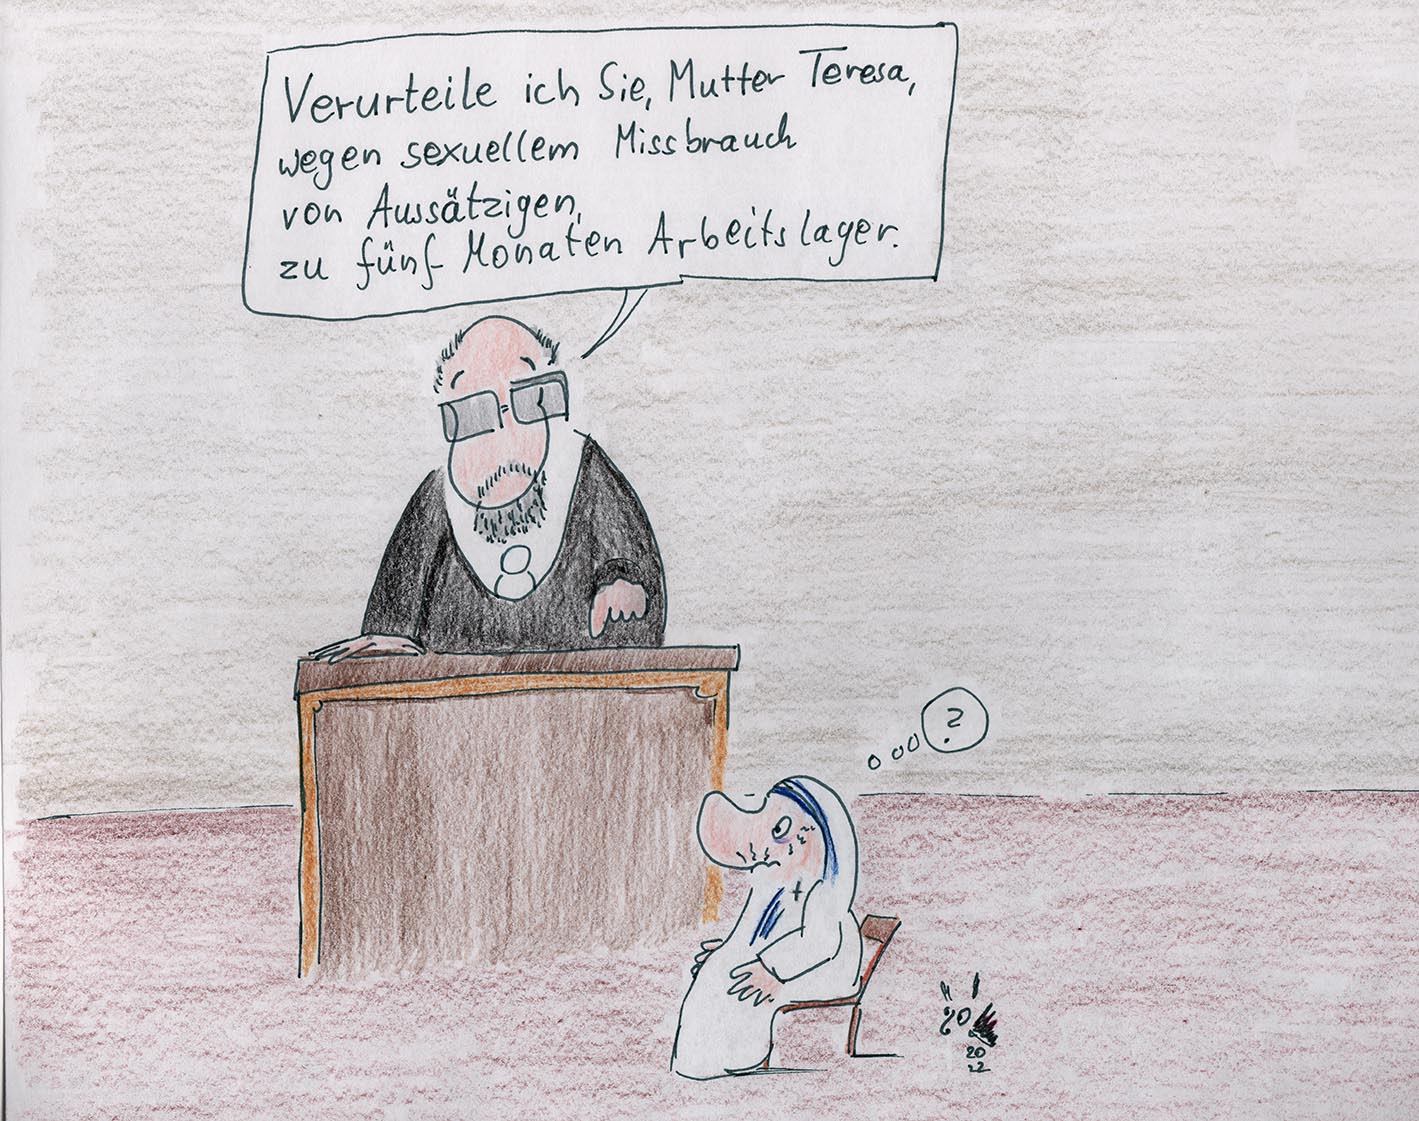 Verurteile ich Sie, Mutter Teresa,
wegen sexuellem Missbrauch
von Aussätzigen,
zu fünf Monaten Arbeitslager.
?
20
22